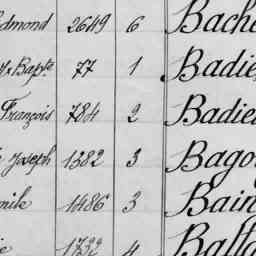 Edmond 2649 6 Bache
Bapte 77 1 Badie
François 784 2 Badie
Joseph 1382 3 Bago
1486 3 Bain
4